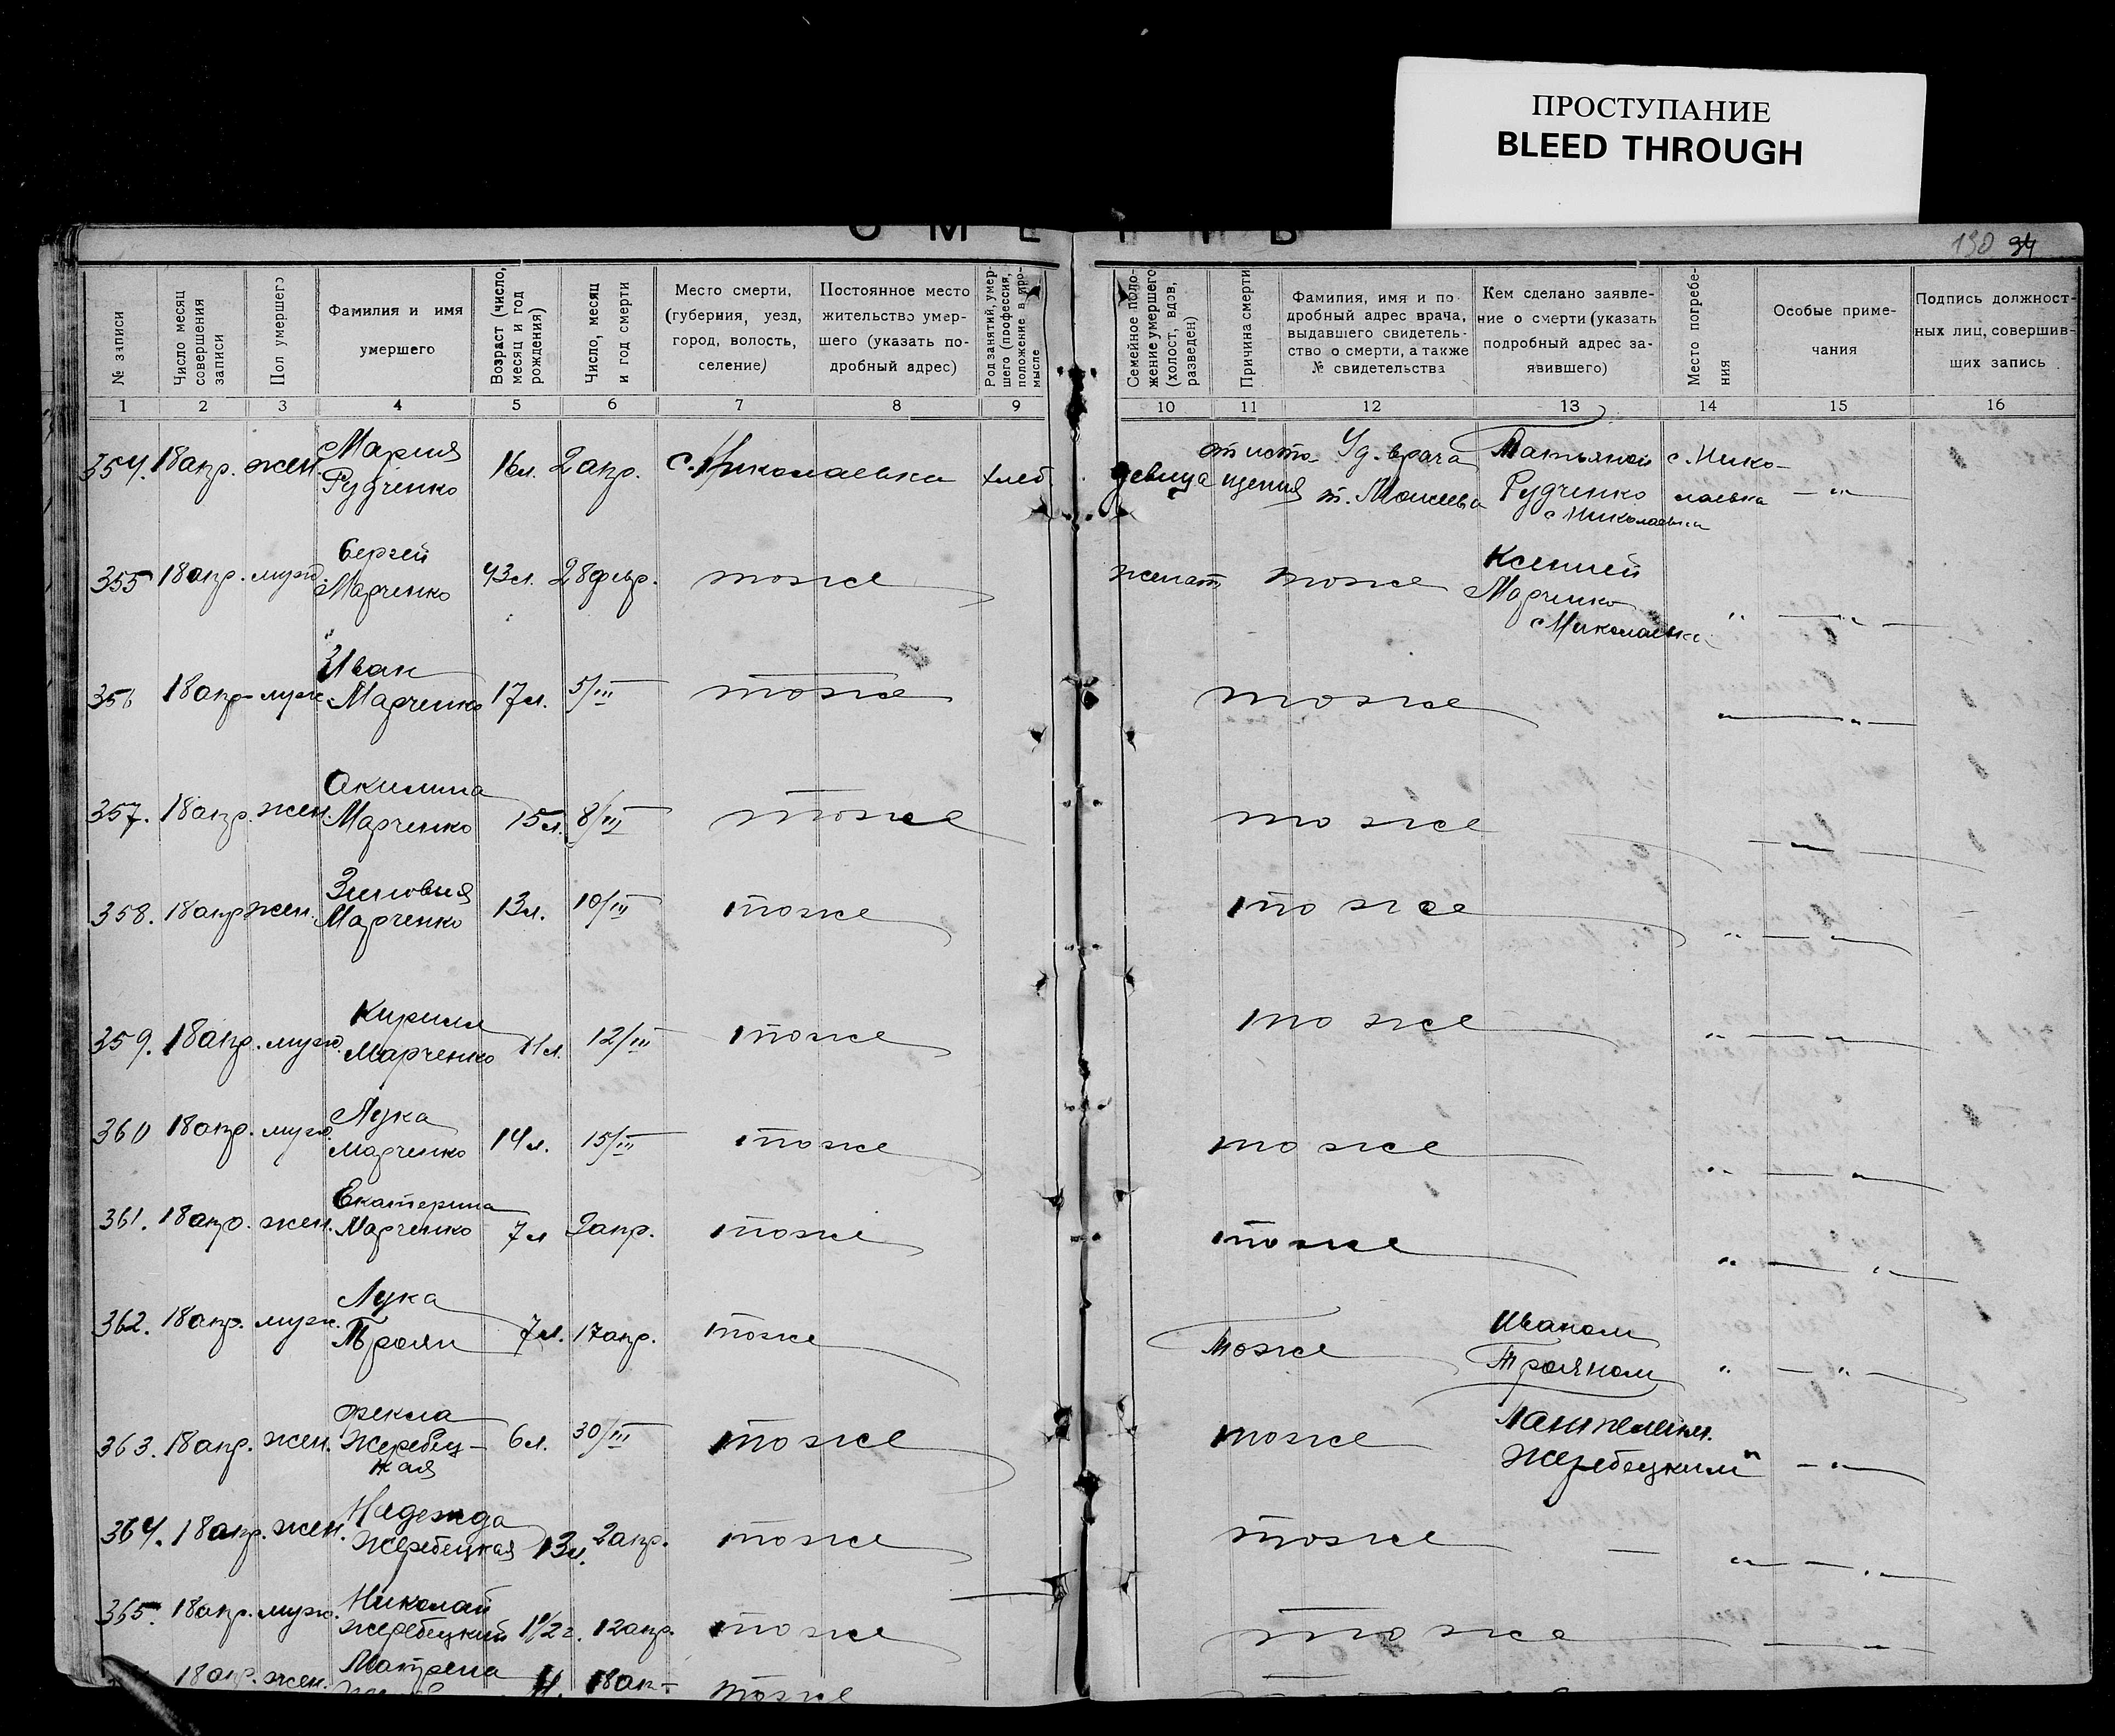 ПРОСТУПАНИЕ
BLEED THROUGH
130 94
№ записи
Число месяц совершения записи
Пол умершего
Фамилия и имя умершего
Возраст (число, месяц и год рождения)
Число, месяц и год смерти
Место смерти, (губерния, уезд, город, волость, селение)
Постоянное место жительство умершего (указать подробный адрес)
Род занятий, умершего (профессия, положение в промысле
Семейное положение умершего (холост, вдов, разведен)
Причина смерти
Фамилия, имя и подробный адрес врача, выдавшего свидетельство о смерти, а также № свидетельства
Кем сделано заявление о смерти (указать подробный адрес заявившего)
Место погребения
Особые примечания
Подпись должностных лиц, совершивших запись
1 2 3 4 5 6 7 8 9 10 11 12 13 14 15 16
354. 18 апр. жен. Мария Рудченко 16 л. 2 апр. с. Николаевка хлеб девица от истощения Уд. врача т. Моисеева Татьяной Рудченко с Николаевка с. Николаевка — " —
355 18 апр. муж. Сергей Марченко 43 л. 28 февр. тоже женат тоже Ксенией Марченко с Николаевка " — " —
356 18 апр. муж. Иван Марченко 17 л. 5/III тоже тоже " — " —
357. 18 апр. жен. Акилина Марченко 15 л. 8/III тоже тоже — " —
358. 18 апр жен. Зиновия Марченко 13 л. 10/III тоже тоже " — " —
359. 18 апр. муж. Кирилл Марченко 11 л. 12/III тоже тоже " — " —
360 18 апр. муж. Лука Марченко 14 л. 15/III тоже тоже " — " —
361. 18 апр. жен. Екатерина Марченко 7 л 2 апр. тоже тоже " — " —
362. 18 апр. муж. Лука Троян 7 л. 17 апр. тоже тоже Иваном Трояном " — " —
363. 18 апр. жен. Фекла Жеребец- кая 6 л. 30/III тоже тоже Пантелейм. Жеребецким " — " —
364. 18 апр. жен. Надежда Жеребецкая 13 л. 2 апр. тоже тоже — " — " —
365. 18 апр. муж. Николай Жеребецкий 1 1/2 г. 12 апр. тоже тоже — " —
18 апр. жен. Матрена 18 ап- тоже